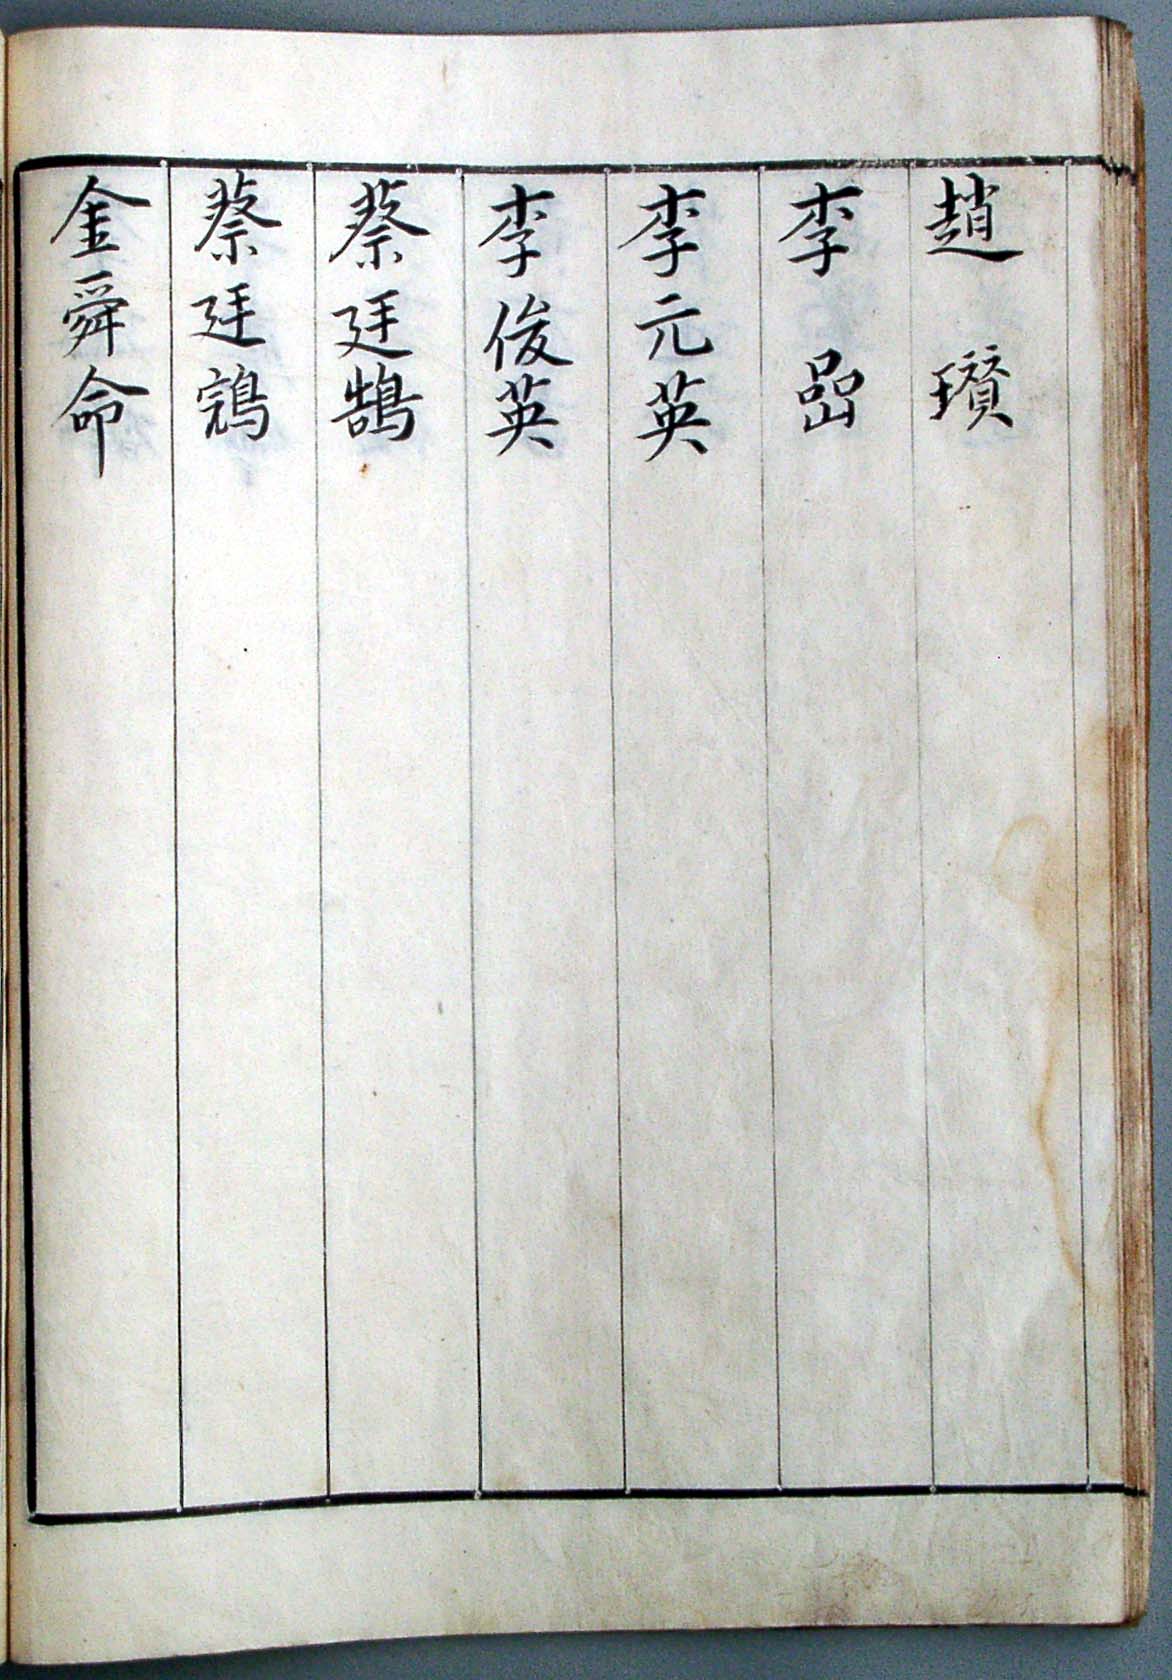 趙瓚
李嵒
李元英
李俊英
蔡廷鵠
蔡廷
金舜命